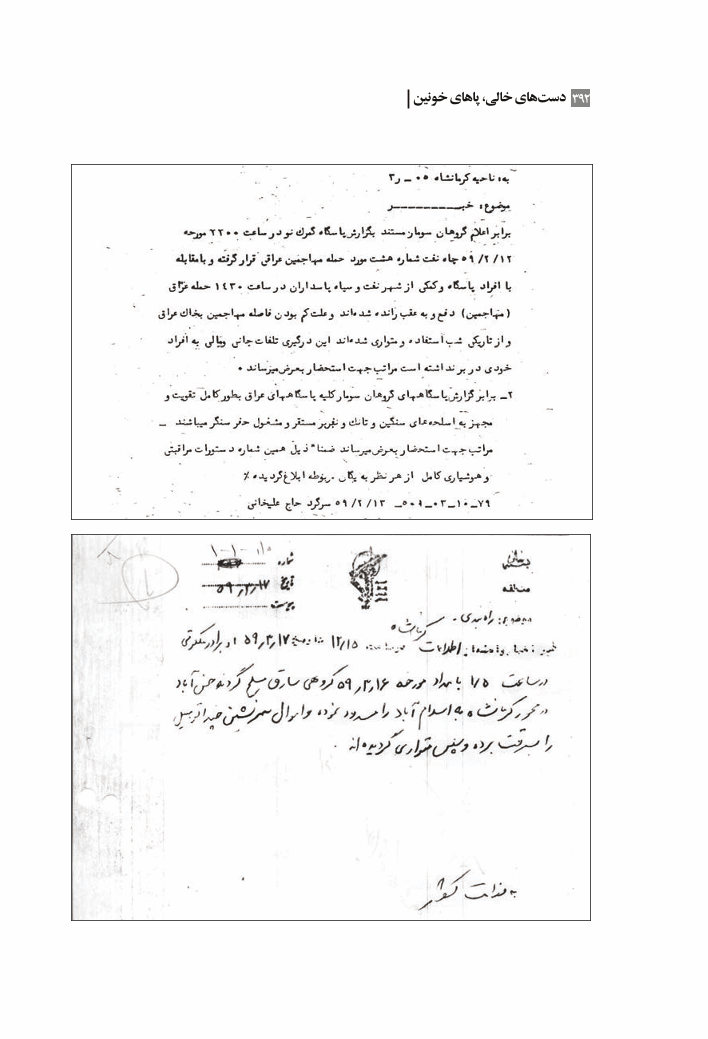 ۳۹۲ دست‌های خالی، پاهای خونین
به: ناحیه کرمانشاه ۰۵ ـ ر۳
موضوع: خبـــــــــر
برابر اعلام گروهان سومار مستند بگزارش پاسگاه گمرك نو در ساعت ۲۲۰۰ مورحه
۵۹/۲/۱۲ چاه نفت شماره هشت مورد حمله مهاجمین عراقی قرار گرفته و با مقابله
با افراد پاسگاه و کمکی از شهر نفت و سپاه پاسداران در ساعت ۱۴۳۰ حمله عراق
(مهاجمین) دفع و به عقب رانده شده‌اند و علت کم بودن فاصله مهاجمین بخاك عراق
و از تاریکی شب استفاده و متواری شده‌اند این درگیری تلفات جانی و مالی به افراد
خودی در بر نداشته است مراتب جهت استحضار بعرض میرساند ۰
۲ـ برابر گزارش پاسگاههای گروهان سومار کلیه پاسگاههای عراق بطور کامل تقویت و
مجهز به اسلحه‌های سنگین و تانك و نفربر مستقر و مشغول حفر سنگر میباشند ـ
مراتب جهت استحضار بعرض میرساند ضمنا" ذیل همین شماره دستورات مراقبتی
و هوشیاری کامل از هر نظر به یگان مربوطه ابلاغ گردیده ٪
۷۹ـ۱۰ـ۰۳ـ۵۰۱ـ ۵۹/۲/۱۳ سرگرد حاج علیخانی
شماره
تاریخ ۵۹/۳/۱۷
پیوست
منطقه
موضوع: راه‌بندی -
کرمانشاه
اطلاعات ساعت ۱۲/۱۵ ۵۹/۳/۱۷ برادر
در ساعت ۱/۵ بامداد مورخه ۵۹/۳/۱۶ گروهی سارق مسلح گردنه حسن آباد
در محور کرمانشاه به اسلام آباد را مسدود نموده و اموال سرنشین چند اتومبیل
را بسرقت برده و سپس متواری گردیده‌اند
به وزارت کشور